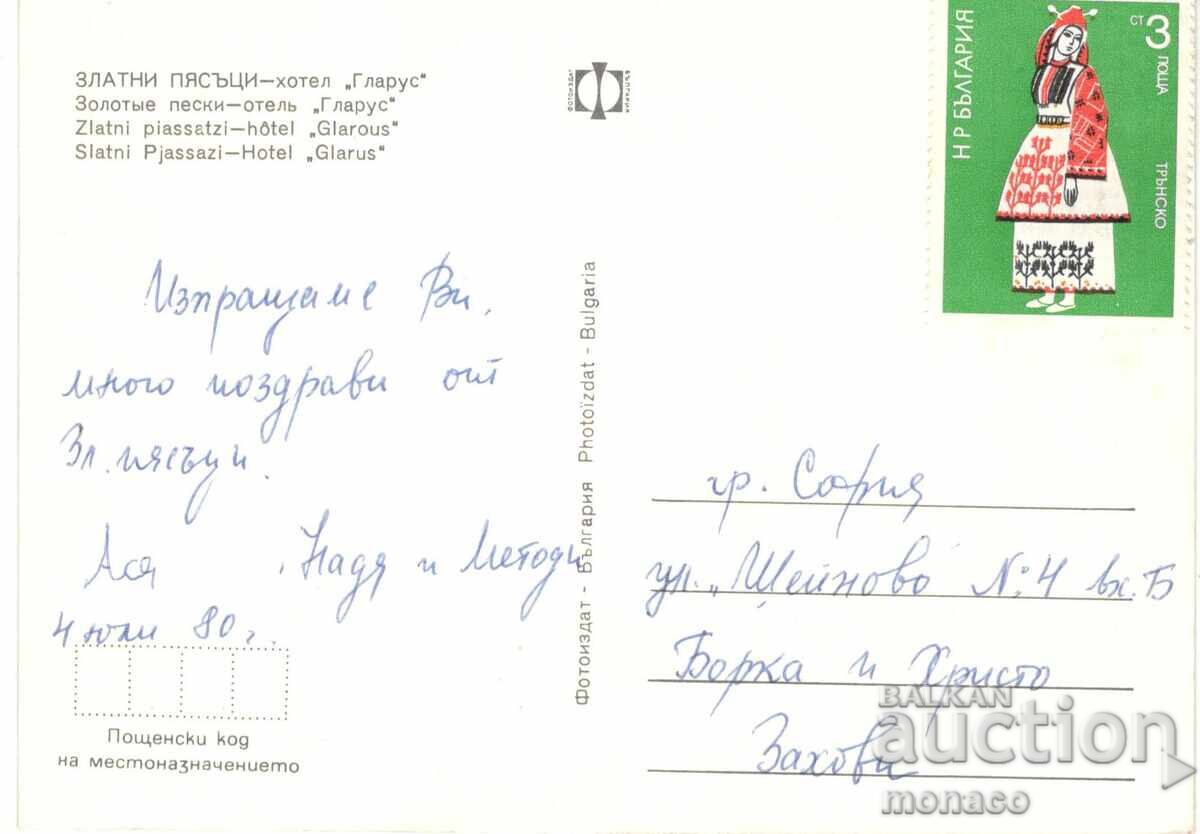 ЗЛАТНИ ПЯСЪЦИ—хотел „Гларус“
Золотые пески—отель „Гларус“
Zlatni piassatzi—hôtel „Glarous“
Slatni Pjassazi—Hotel „Glarus“
ФОТОИЗДАТ
БЪЛГАРИЯ
НР БЪЛГАРИЯ
СТ 3 ПОЩА
ТРЪНСКО
Изпращаме Ви,
много поздрави от
Зл. пясъци.
Ася , Надя и Методи
4 юли 80 г.
Пощенски код
на местоназначението
Фотоиздат - България Photoïzdat - Bulgaria
гр. София
ул. „Шейново №4 вх. Б
Борка и Христо
Захови
BALKAN
auction
monaco